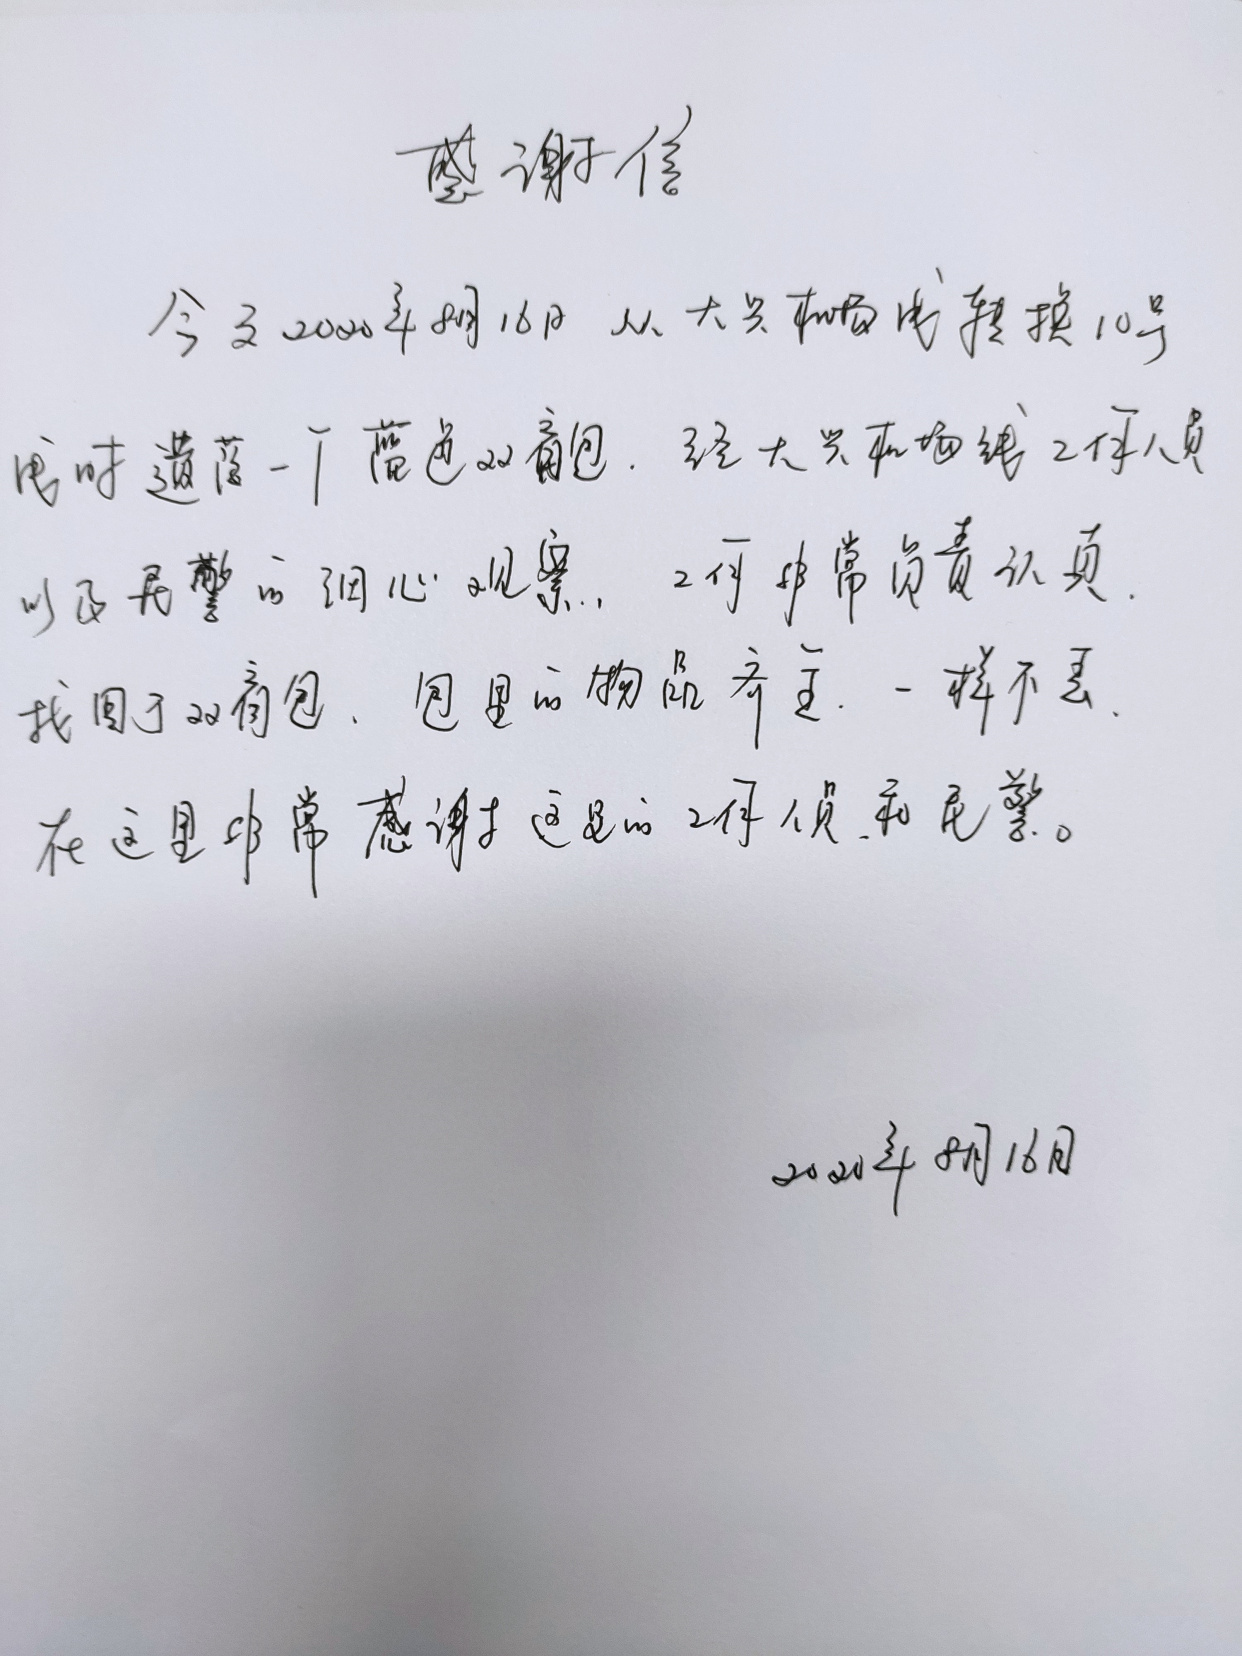 感谢信
今天2020年8月16日 从大兴机场线转换10号
线时遗落一个蓝色双肩包. 经大兴机场线工作人员
以及民警的细心观察, 工作非常负责认真.
找回了双肩包. 包里的物品齐全. 一样不丢.
在这里非常感谢这里的工作人员和民警。
2020年8月16日